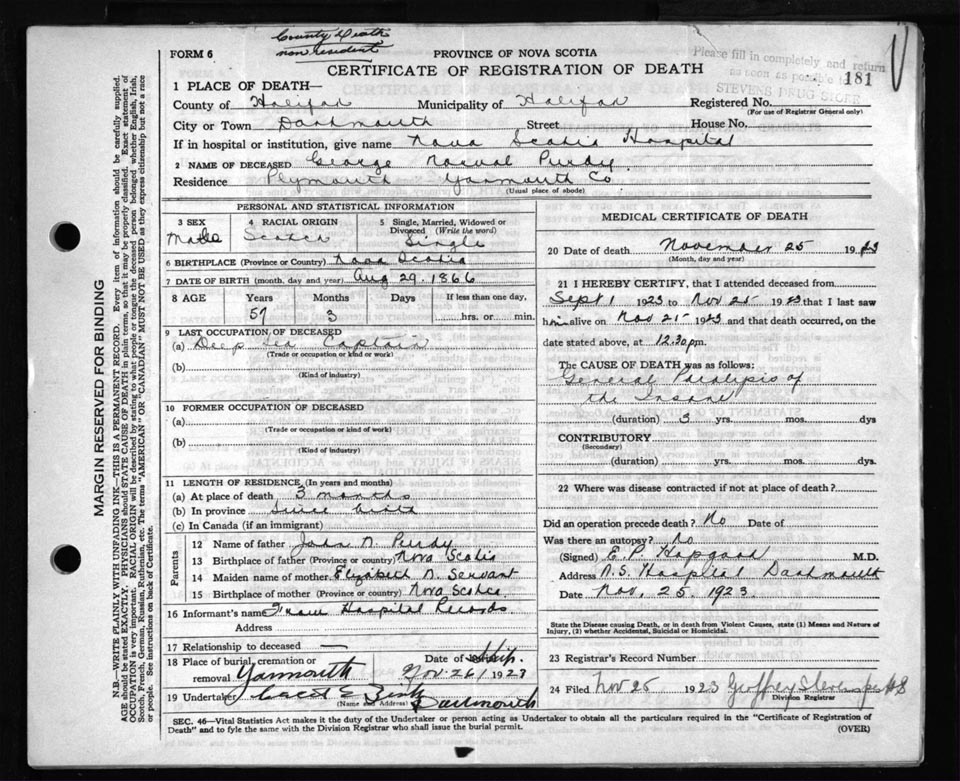 County Death
non resident
FORM 6
PROVINCE OF NOVA SCOTIA
Please fill in completely and return
as soon as possible to
STEVENS DRUG STORE
181
CERTIFICATE OF REGISTRATION OF DEATH
1 PLACE OF DEATH—
County of Halifax Municipality of Halifax Registered No.
(For use of Registrar General only)
City or Town Dartmouth Street House No.
If in hospital or institution, give name Nova Scotia Hospital
2 NAME OF DECEASED George Norval Purdy
Residence Plymouth Yarmouth Co
(Usual place of abode)
PERSONAL AND STATISTICAL INFORMATION
3 SEX Male
4 RACIAL ORIGIN Scotch
5 Single, Married, Widowed or Divorced (Write the word) Single
6 BIRTHPLACE (Province or Country) Nova Scotia
7 DATE OF BIRTH (month, day and year) Aug 29. 1866
8 AGE Years Months Days If less than one day,
57 3 hrs. or min.
9 LAST OCCUPATION OF DECEASED
(a) Deep Sea Captain
(Trade or occupation or kind or work)
(b)
(Kind of industry)
10 FORMER OCCUPATION OF DECEASED
(a)
(Trade or occupation or kind of work)
(b)
(Kind of industry)
11 LENGTH OF RESIDENCE (In years and months)
(a) At place of death 3 months
(b) In province Since birth
(c) In Canada (if an immigrant)
Parents
12 Name of father John N. Purdy
13 Birthplace of father (Province or country) Nova Scotia
14 Maiden name of mother Elizabeth N. Servant
15 Birthplace of mother (Province or country) Nova Scotia
16 Informant's name From Hospital Records
Address
17 Relationship to deceased —
18 Place of burial, cremation or removal Yarmouth Date of Ship. Nov 26/ 1923
19 Undertaker
(Name and Address) Dartmouth
MEDICAL CERTIFICATE OF DEATH
20 Date of death November 25 1923
(Month, day and year)
21 I HEREBY CERTIFY, that I attended deceased from
Sept 1 1923 to Nov 25 1923 that I last saw
him alive on Nov 25 1923 and that death occurred, on the
date stated above, at 12.30 pm.
The CAUSE OF DEATH was as follows:
General Paralysis of
the Insane
(duration) 3 yrs. mos. dys
CONTRIBUTORY
(Secondary)
(duration) yrs. mos. dys.
22 Where was disease contracted if not at place of death?
Did an operation precede death? No Date of
Was there an autopsy? No
(Signed) E. P. Hopgood M.D.
Address N.S. Hospital Dartmouth
Date Nov. 25. 1923.
State the Disease causing Death, or in death from Violent Causes, state (1) Means and Nature of
Injury, (2) whether Accidental, Suicidal or Homicidal.
23 Registrar's Record Number
24 Filed Nov 25 1923 Geoffrey
Division Registrar
SEC. 46—Vital Statistics Act makes it the duty of the Undertaker or person acting as Undertaker to obtain all the particulars required in the "Certificate of Registration of
Death" and to fyle the same with the Division Registrar who shall issue the burial permit.
(OVER)
MARGIN RESERVED FOR BINDING
N.B.—WRITE PLAINLY WITH UNFADING INK—THIS IS A PERMANENT RECORD. Every item of information should be carefully supplied.
AGE should be stated EXACTLY. PHYSICIANS should STATE CAUSE OF DEATH in plain terms, so that it may be properly classified. Exact statement of
OCCUPATION is very important. RACIAL ORIGIN will be described by stating to what people or tongue the deceased person belonged whether English, Irish,
Scotch, French, German, Russian, Ruthenian, etc. The terms "AMERICAN" OR "CANADIAN" MUST NOT BE USED as they express citizenship but not a race
or people. See instructions on back of Certificate.